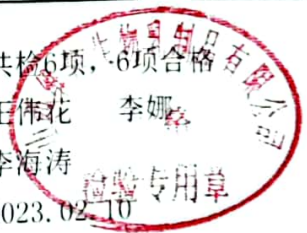 共检6项, 6项合格
王伟花 李娜
李海涛
2023.02.10
生物乳制品有限公司
检验专用章